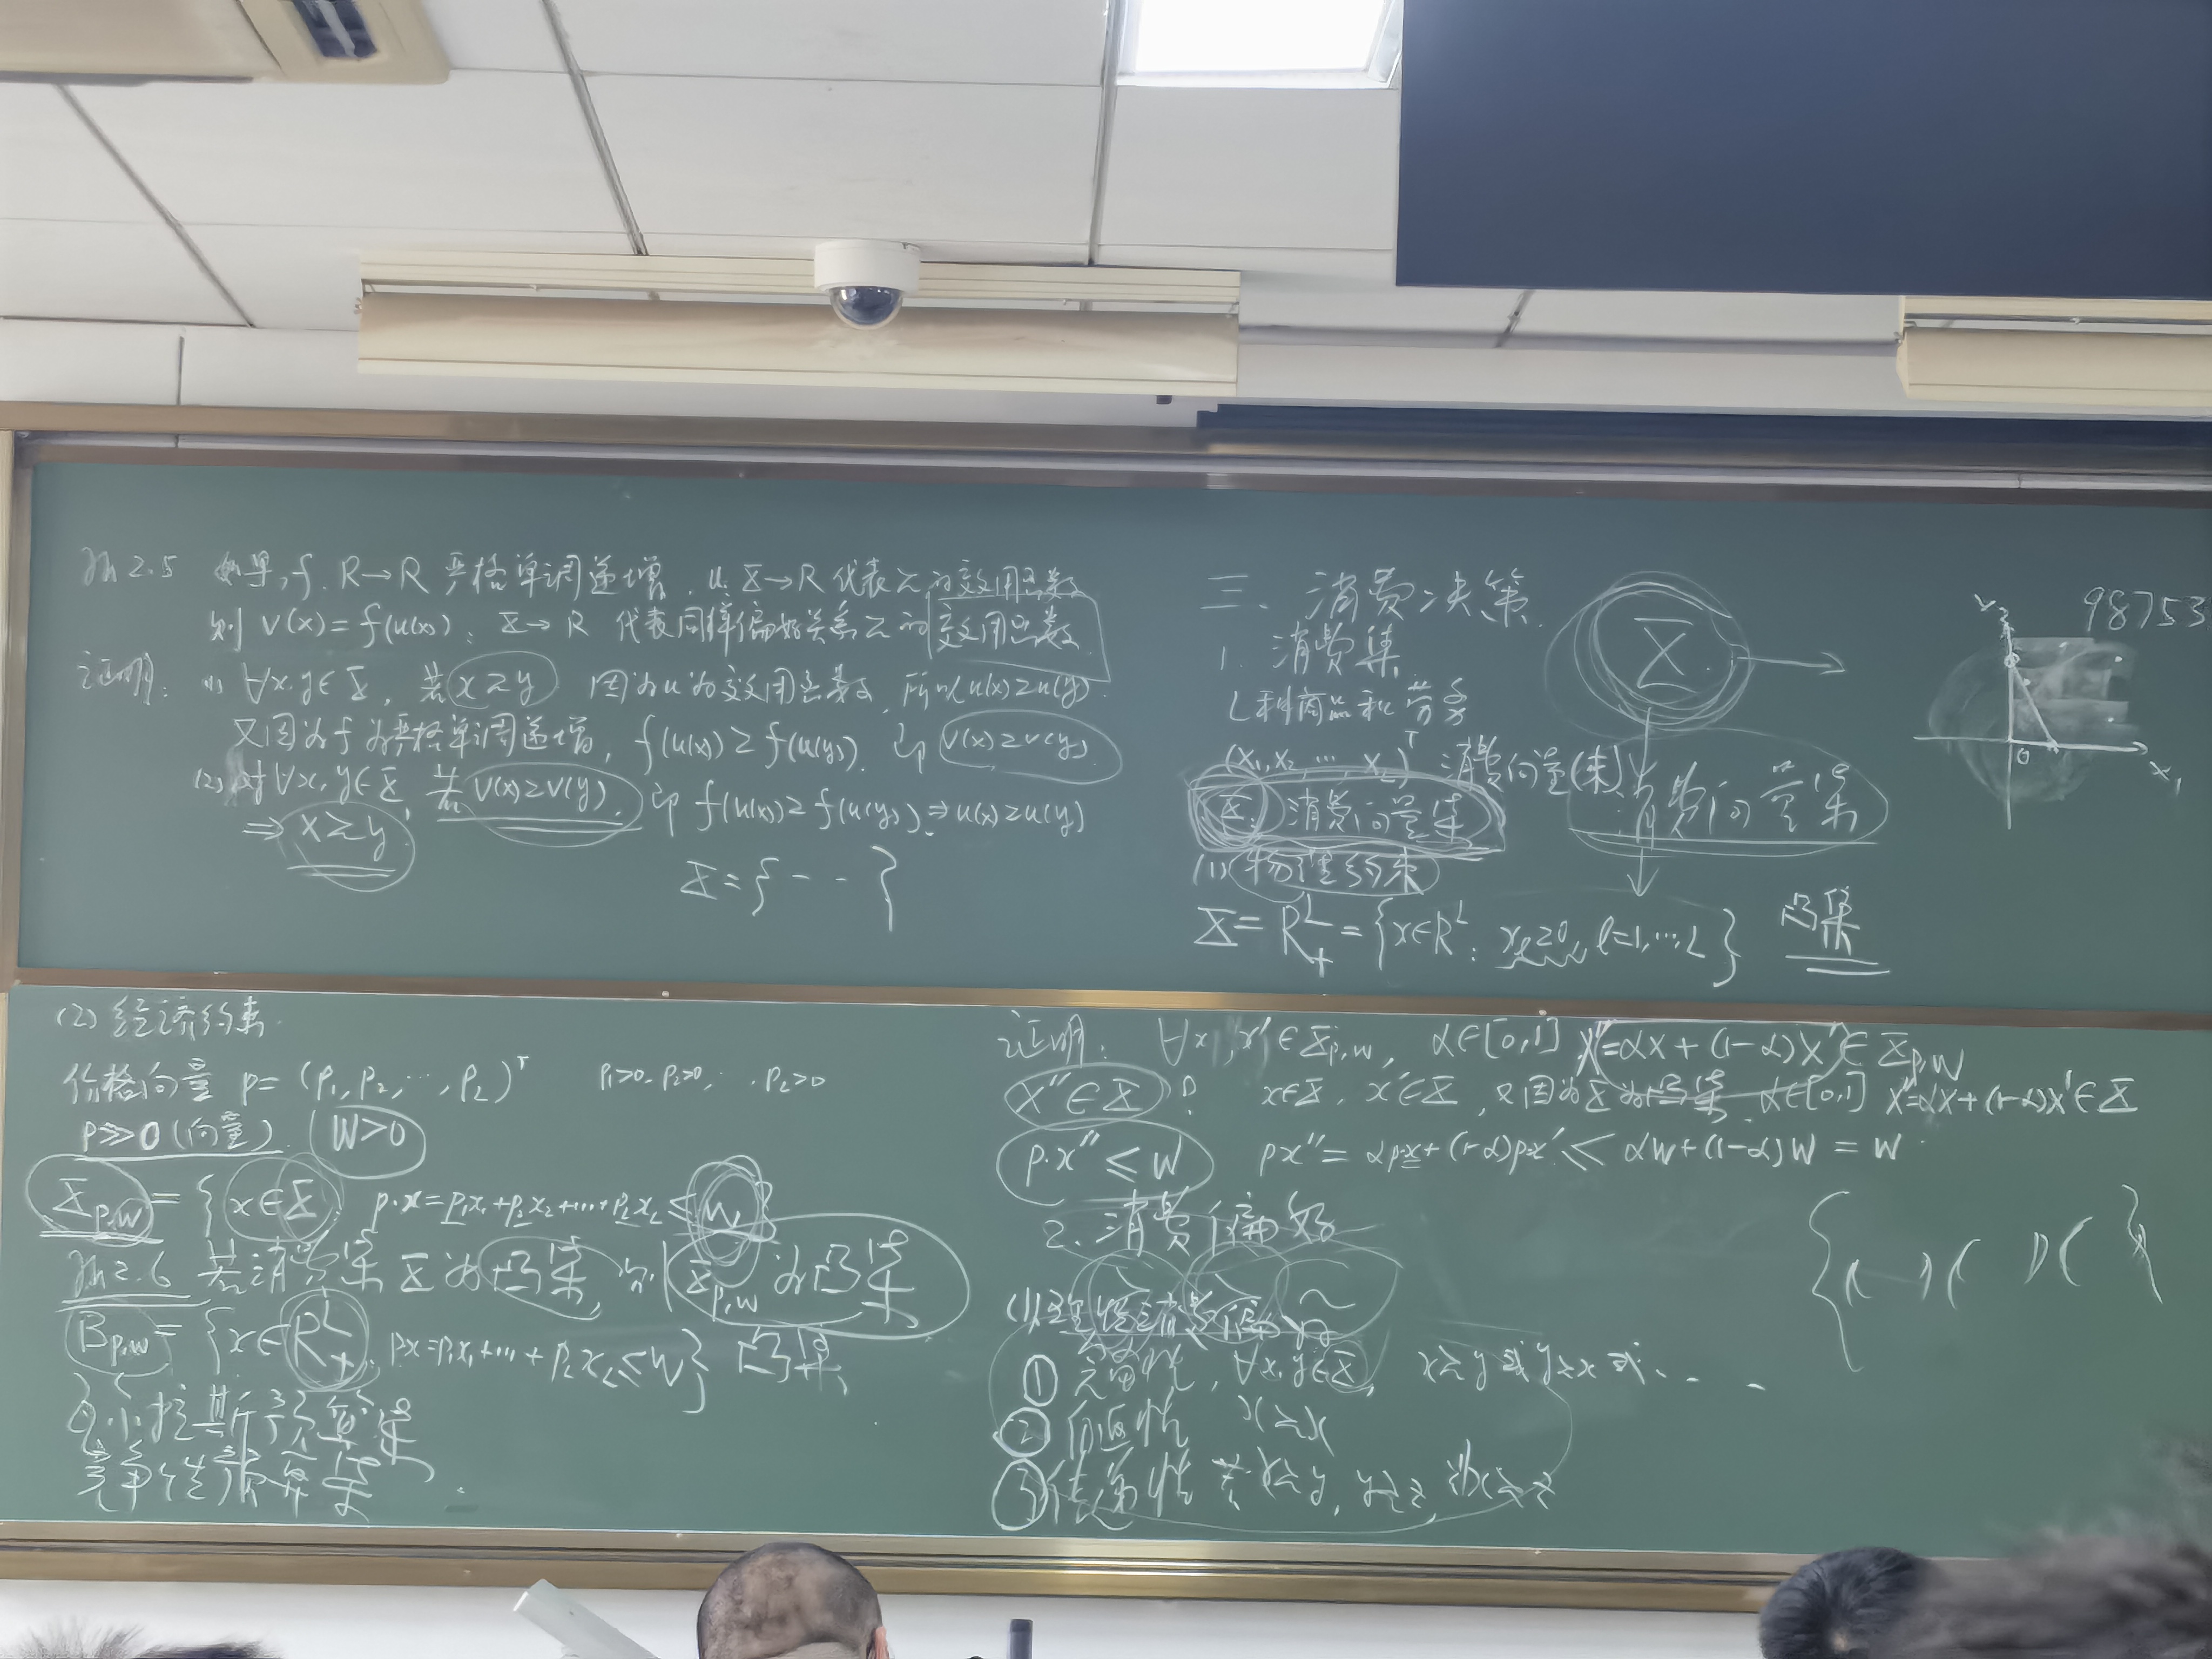 Th 2.5 如果, f: R→R 严格单调递增, u: X→R 代表≿的效用函数
则 v(x)=f(u(x)): X→R 代表同样偏好关系≿的效用函数.
证明: (1) ∀x,y∈X, 若 x≿y 因为u为效用函数, 所以u(x)≥u(y).
又因为f为严格单调递增, f(u(x))≥f(u(y)). 即 v(x)≥v(y).
(2) 对∀x,y∈X, 若 v(x)≥v(y), 即 f(u(x))≥f(u(y)).⇒u(x)≥u(y)
⇒ x≿y
X={-- }
三. 消费决策.
1. 消费集
L种商品和劳务
(x₁,x₂,…,x_L)ᵀ 消费向量(束)
X: 消费向量集
(1) 物理约束
X=R₊ᴸ={x∈Rᴸ: x_ℓ≥0, ℓ=1,…,L} 凸集
X
消费向量集
98753
x₂
0
x₁
(2) 经济约束.
价格向量 p=(p₁,p₂,…,p_L)ᵀ p₁>0, p₂>0, …, p_L>0
p≫0(向量). W>0
X_{p,w}={x∈X: p·x=p₁x₁+p₂x₂+…+p_Lx_L≤w}
Th 2.6 若消费集X为凸集, 则X_{p,w}为凸集
B_{p,w}={x∈R₊ᴸ: px=p₁x₁+…+p_Lx_L≤w} 凸集
瓦尔拉斯预算集
竞争性预算集.
证明: ∀x,x′∈X_{p,w}, α∈[0,1] x″=αx+(1-α)x′∈X_{p,w}
x″∈X? x∈X, x′∈X, 又因为X为凸集. α∈[0,1] x″=αx+(1-α)x′∈X
p·x″≤w px″=αp·x+(1-α)px′≤αw+(1-α)w=w.
2. 消费偏好
(1) 理性消费偏好
① 完备性, ∀x,y∈X, x≿y或y≿x或…
② 自返性 x≿x
③ 传递性 若x≿y, y≿z, 则x≿z
{( )( )( }